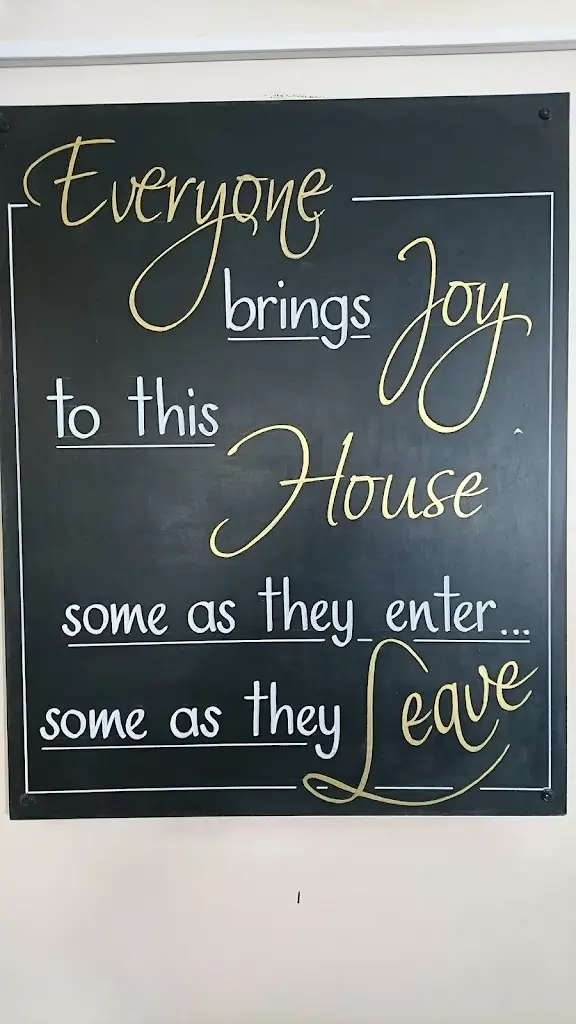 Everyone
brings Joy
to this
House
some as they enter...
some as they Leave